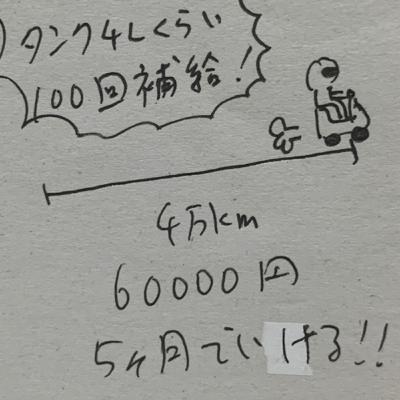 タンク4Lくらい
100回補給!
4万km
60000回
5ヶ月でいける!!